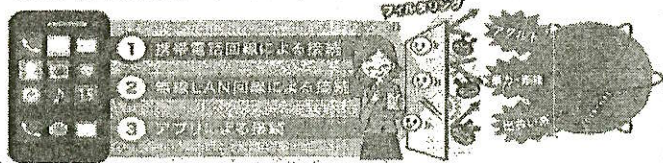 フィルタリング
1 携帯電話回線による接続
2 無線LAN回線による接続
3 アプリによる接続
アダルト
暴力・虐待
出会い系